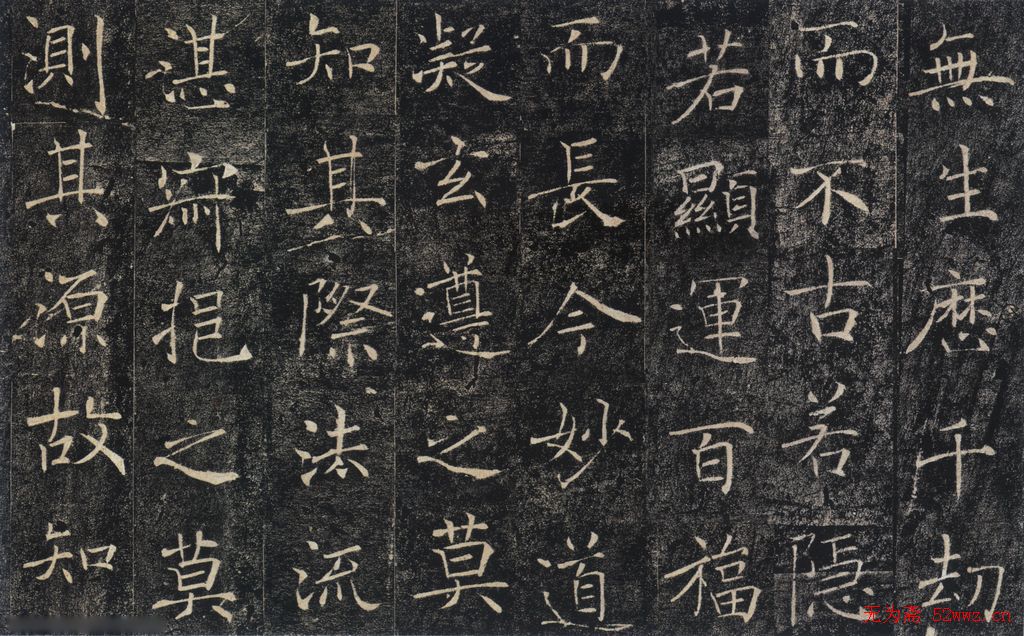 無生歷千劫
而不古若隱
若顯運百福
而長今妙道
凝玄遵之莫
知其際法流
湛寂挹之莫
測其源故知
无为斋 52wwz.cn